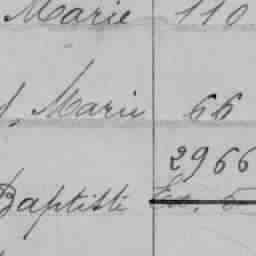 Marie 110
Marie 66
2966
Baptiste